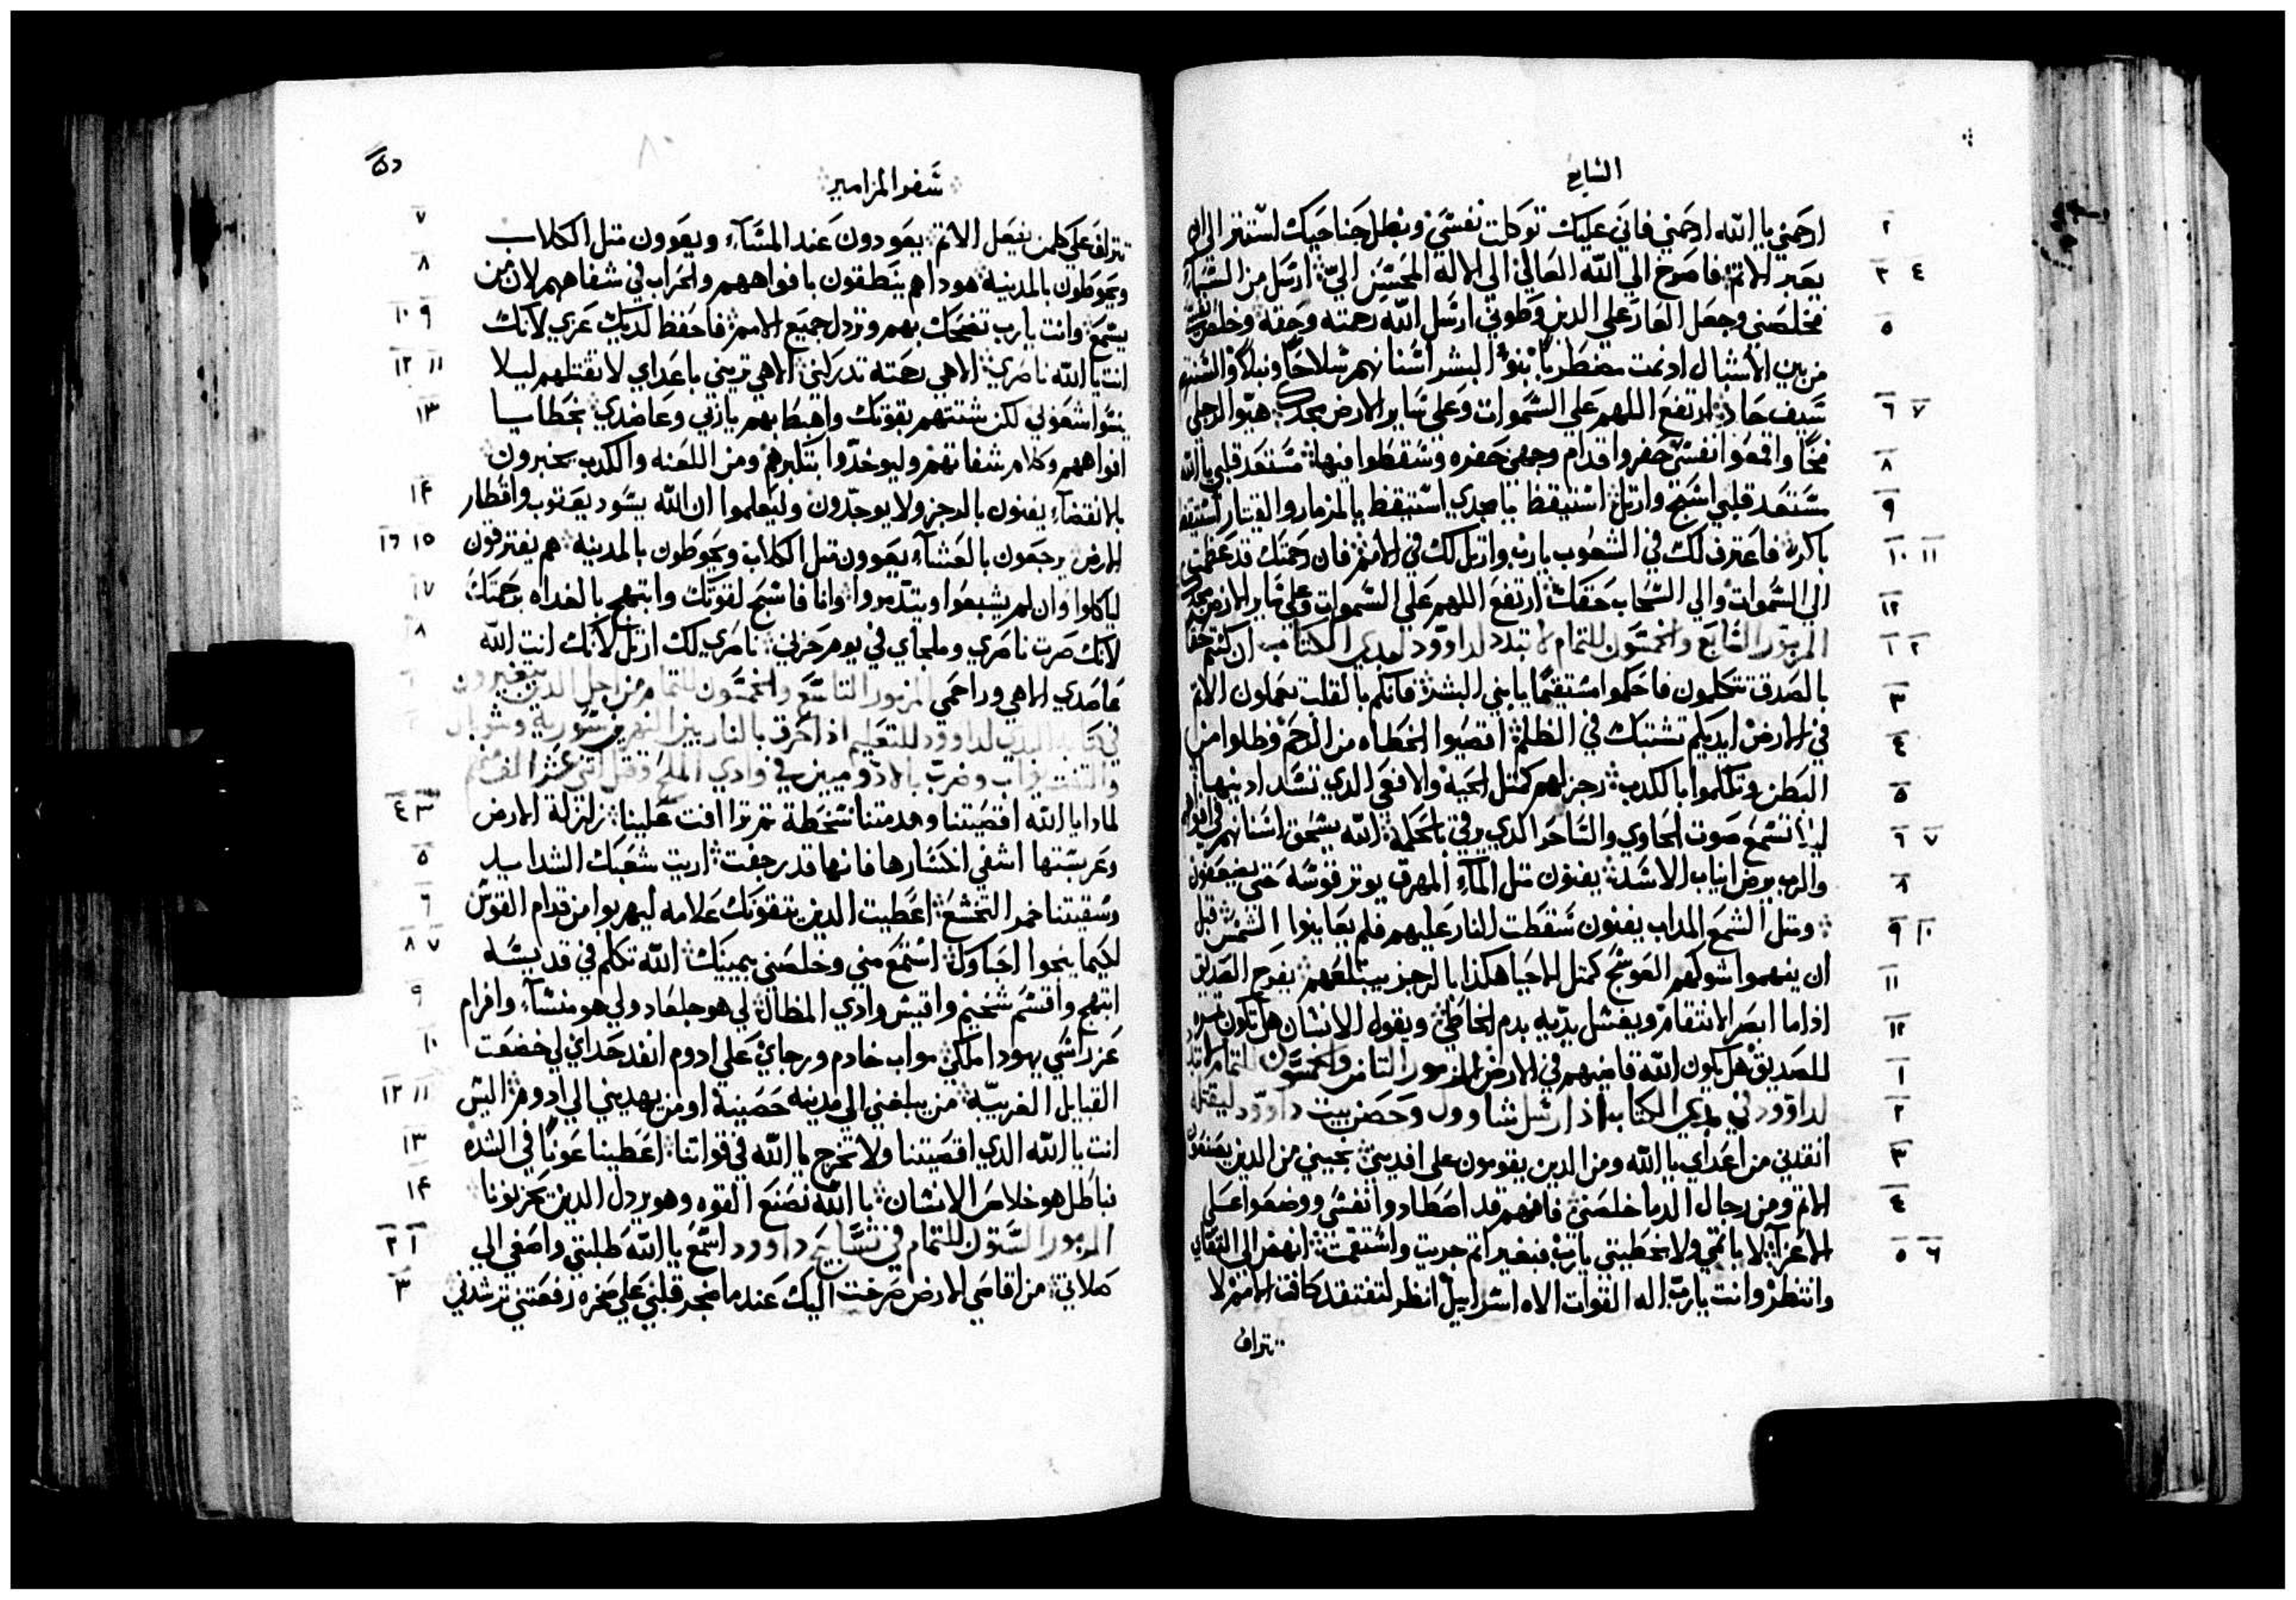 السابع
ارحمني يا الله ارحمني فاني عليك توكلت نفسي وبظل جناحيك استتر الى ان
يعبر الاثم فاصرخ الي الله العالي الى الاله المحسن اليّ ارسل من السماء
فخلصني وجعل العار علي الذين وطوني ارسل الله رحمته وحقه وخلص نفسي
من بين الاشبال اذ نمت مضطربا بنوا البشر اسنانهم سلاحا ونبلا والسنتهم
سيف حاد ارتفع اللهم علي السموات وعلي ساير الارض مجدك هيوا لرجلي
فخا واقمعوا نفسي حفروا قدام وجهي حفره وسقطوا فيها مستعد قلبي يا الله
مستعد قلبي اسبح وارتل استيقظ يا مجدي استيقظ يا المزمار والقيتار استيقظ
باكرا فاعترف لك في الشعوب يا رب وارتل لك في الامم فان رحمتك قد عظمت
الي السموات والي السحاب حقك ارتفع اللهم علي السموات وعلي ساير الارض مجدك
المزمور السابع والخمسون للتمام لا تبدد لداوود لمدي الكتاب ان كنتم حقا
بالصدق تتكلمون فاحكموا مستقيما يا بني البشر فانكم بالقلب تعملون الاثم
في الارض ايديكم تشتبك في الظلم اقصوا الخطاه من الرحم وظلوا من
البطن وتكلموا بالكدب رجزلهم كمثل الحية والافعي الدي تسد ادنيها
ليلا تسمع صوت الحاوي والساحر الدي يرقي بالحكمة الله يسحق اسنانهم في افواههم
والرب يرض انياب الاسد يفنون متل الماء المهرق يوتر قوسه حتي يضعفون
ومتل الشمع المداب يفنون سقطت النار عليهم فلم يعاينوا الشمس قبل
ان يفهموا شوكهم العوسج كمثل الاحيا هكذا بالرجز يبتلعهم يفرح الصديق
اذا ما ابصر الانتقام ويغسل يديه بدم الخاطي ويقول الانسان هل تكون تمره
للصديق هل يكون الله قاضيهم في الارض المزمور التامن والخمسون للتمام لا تبدد
لداوود في مدي الكتابه اذ ارسل شاوول وحصن بيت داوود ليقتله
انقدني من اعداي يا الله ومن الدين يقومون علي افديني نجيني من الدين يصنعون
الاثم ومن رجال الدما خلصني فانهم قد اصطادوا نفسي ووضعوا علي
الاعزآ لا باثمي ولا بخطيتي يا رب فبغير اثم جريت واستقمت انهض الي التقاي
وانتظر وانت يا رب اله القوات الاه اسراييل انظر لتفتقد كافة الامم لا
تتراف
سفر المزامير
تتراف علي كلمن يفعل الاثم يعودون عند المسآء ويعوون متل الكلاب
ويحوطون بالمدينة هوداهم ينطقون بافواههم والحراب في شفاههم لان من
يسمع وانت يا رب تضحك بهم وتردل جميع الامم فاحفظ لديك عزي لانك
انت يا الله ناصري الاهي رحمته تدركني الاهي تريني باعداي لا تقتلهم ليلا
ينسوا شعوبي لكن شتتهم بقوتك واهبطهم يا ربي وعاضدي بخطايا
افواههم وكلام شفاتهم وليوخدوا بتكبرهم ومن اللعنه والكدب يخبرون
بالانقضآء يفنون بالرجز ولا يوجدون وليعلموا ان الله يسود يعقوب واقطار
الارض يرجعون بالعشآء يعوون متل الكلاب ويحوطون بالمدينه هم يفترقون
لياكلوا وان لم يشبعوا ويتدمروا وانا فاسبح لقوتك وابتهج بالغداه برحمتك
لانك صرت ناصري وملجاي في يوم حزني ناصري لك ارتل لانك انت الله
عاضدي الاهي وراحمي المزمور التاسع والخمسون للتمام من اجل الدين يتغيرون
في كتابه المدي لداوود للتعليم اذ احرق بالنار بين النهرين سورية وسوبال
والتفت يواب وضرب بالادوميين في وادي الملح وقتل اثني عشر الف
لمادا يا الله اقصيتنا وهدمتنا سخطة تم تراافت علينا زلزلة الارض
وعربستها اشفي انكسارها فانها قد رجفت اريت شعبك الشدايد
وسقيتنا خمر التخشع اعطيت الدين يتقونك علامه ليهربوا من قدام القوس
لكيما ينجوا احباوك استمع مني وخلصني بيمينك الله تكلم في قديسه
ابتهج واقسم شخيم واقيس وادي المظال لي هو جلعاد ولي هو منسآء وافرام
عز راسي يهودا ملكي مواب خادم ورجاي علي ادوم انفد حداي لي خضعت
القبايل الغريبة من يبلغني الي مدينه حصينة او من يهديني الي ادوم اليس
انت يا الله الدي اقصيتنا ولا تخرج يا الله في قواتنا اعطينا عونا في الشده
فباطل هو خلاص الانسان بالله نصنع القوه وهو يردل الدين يحزبونا
المزمور الستون للتمام في تسابيح داوود اسمع يا الله طلبتي واصغي الي
صلاتي من اقاصي الارض صرخت اليك عندما ضجر قلبي علي صخره رفعتني ترشدني